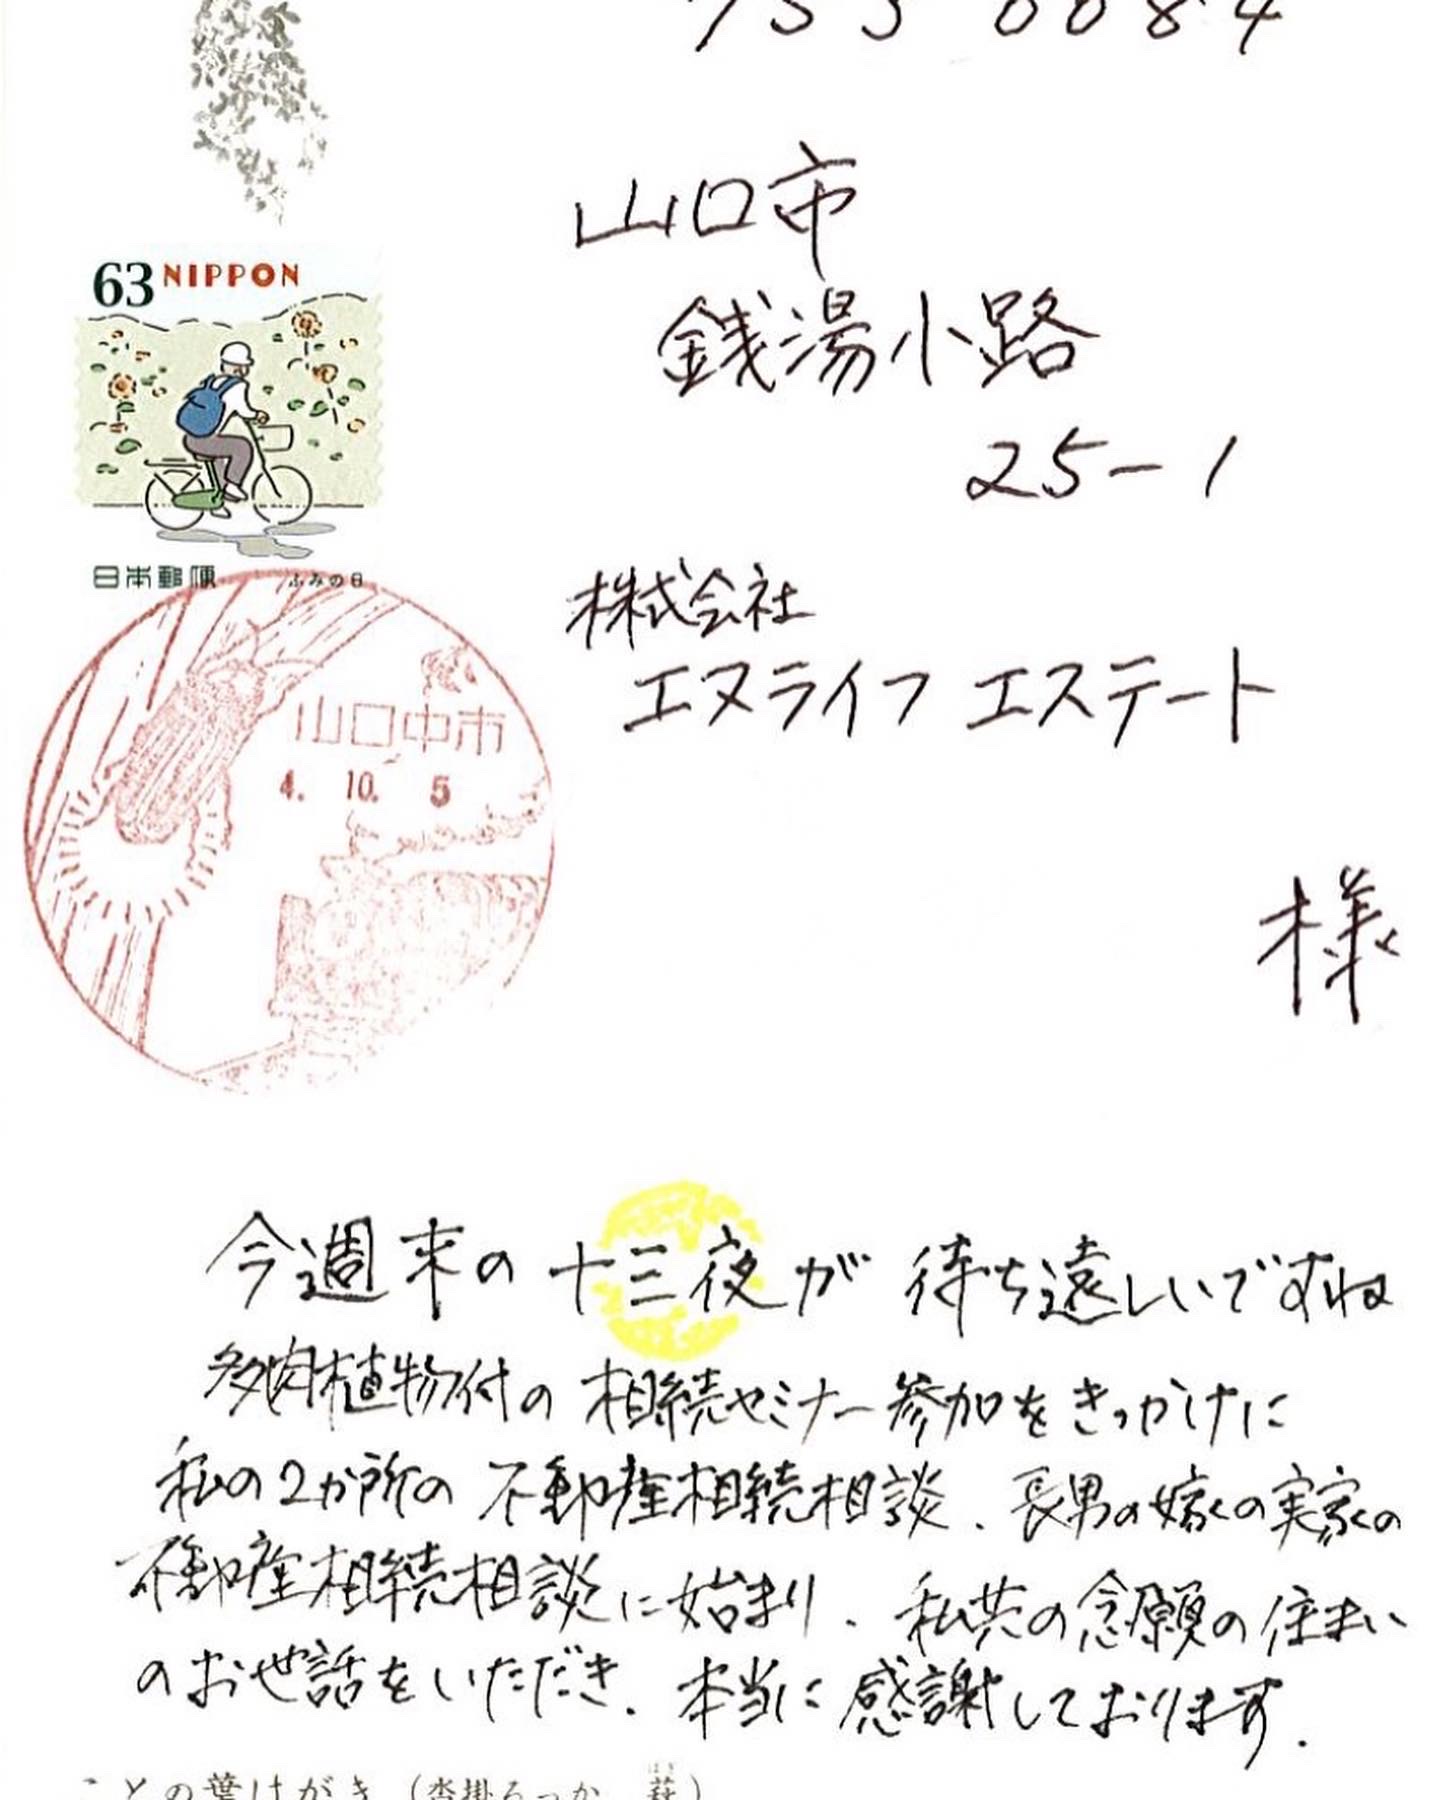 753 0084
山口市
銭湯小路
25-1
63 NIPPON
日本郵便 ふみの日
株式会社
エヌライフ エステート
山口中市
4. 10. 5
様
今週末の十三夜が待ち遠しいですね
多肉植物付の相続セミナー参加をきっかけに
私の2か所の不動産相続相談、長男の嫁の実家の
不動産相続相談に始まり、私共の念願の住まい
のお世話をいただき、本当に感謝しております。
ことの葉はがき(沓掛ろっか 萩)